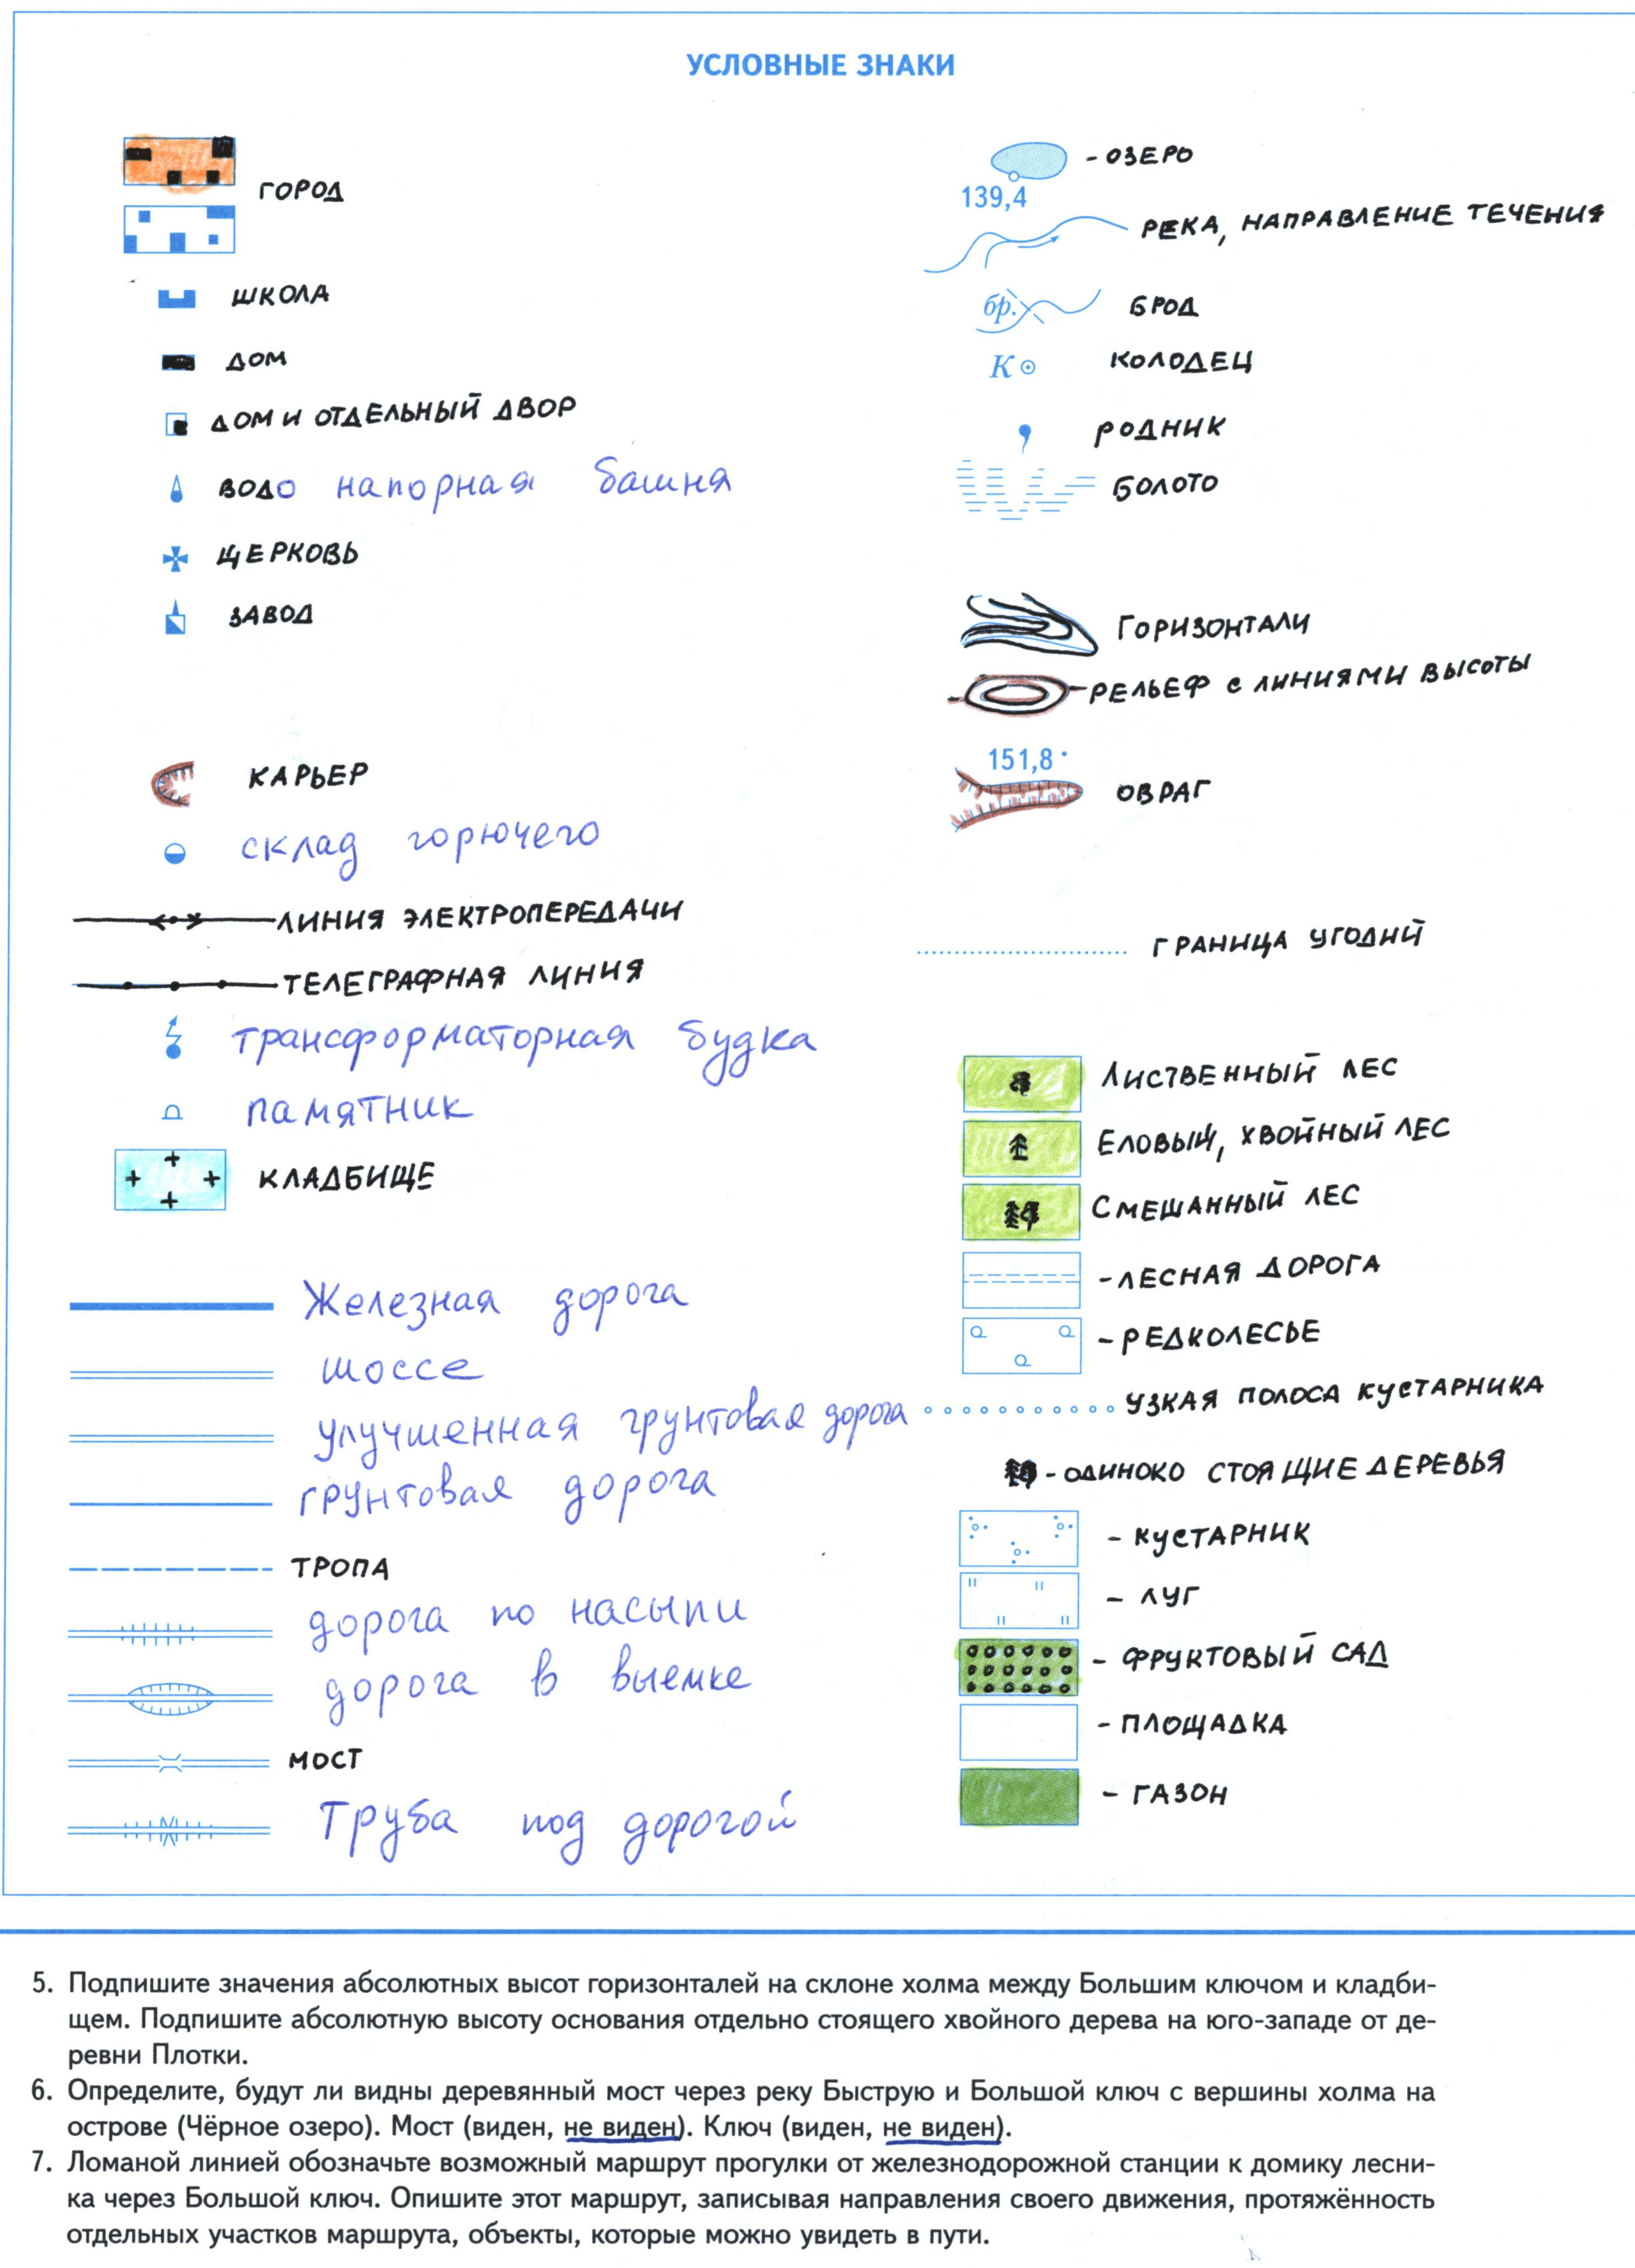 УСЛОВНЫЕ ЗНАКИ
ГОРОД
ШКОЛА
ДОМ
ДОМ И ОТДЕЛЬНЫЙ ДВОР
ВОДО напорная башня
ЦЕРКОВЬ
ЗАВОД
КАРЬЕР
склад горючего
ЛИНИЯ ЭЛЕКТРОПЕРЕДАЧИ
ТЕЛЕГРАФНАЯ ЛИНИЯ
трансформаторная будка
памятник
КЛАДБИЩЕ
Железная дорога
шоссе
улучшенная грунтовая дорога
грунтовая дорога
ТРОПА
дорога по насыпи
дорога в выемке
МОСТ
Труба под дорогой
- ОЗЕРО
139,4
РЕКА, НАПРАВЛЕНИЕ ТЕЧЕНИЯ
бр. БРОД
К КОЛОДЕЦ
РОДНИК
БОЛОТО
ГОРИЗОНТАЛИ
РЕЛЬЕФ С ЛИНИЯМИ ВЫСОТЫ
151,8
ОВРАГ
ГРАНИЦА УГОДИЙ
ЛИСТВЕННЫЙ ЛЕС
ЕЛОВЫЙ, ХВОЙНЫЙ ЛЕС
СМЕШАННЫЙ ЛЕС
- ЛЕСНАЯ ДОРОГА
- РЕДКОЛЕСЬЕ
УЗКАЯ ПОЛОСА КУСТАРНИКА
- ОДИНОКО СТОЯЩИЕ ДЕРЕВЬЯ
- КУСТАРНИК
- ЛУГ
- ФРУКТОВЫЙ САД
- ПЛОЩАДКА
- ГАЗОН
5. Подпишите значения абсолютных высот горизонталей на склоне холма между Большим ключом и кладби-
щем. Подпишите абсолютную высоту основания отдельно стоящего хвойного дерева на юго-западе от де-
ревни Плотки.
6. Определите, будут ли видны деревянный мост через реку Быструю и Большой ключ с вершины холма на
острове (Чёрное озеро). Мост (виден, не виден). Ключ (виден, не виден).
7. Ломаной линией обозначьте возможный маршрут прогулки от железнодорожной станции к домику лесни-
ка через Большой ключ. Опишите этот маршрут, записывая направления своего движения, протяжённость
отдельных участков маршрута, объекты, которые можно увидеть в пути.